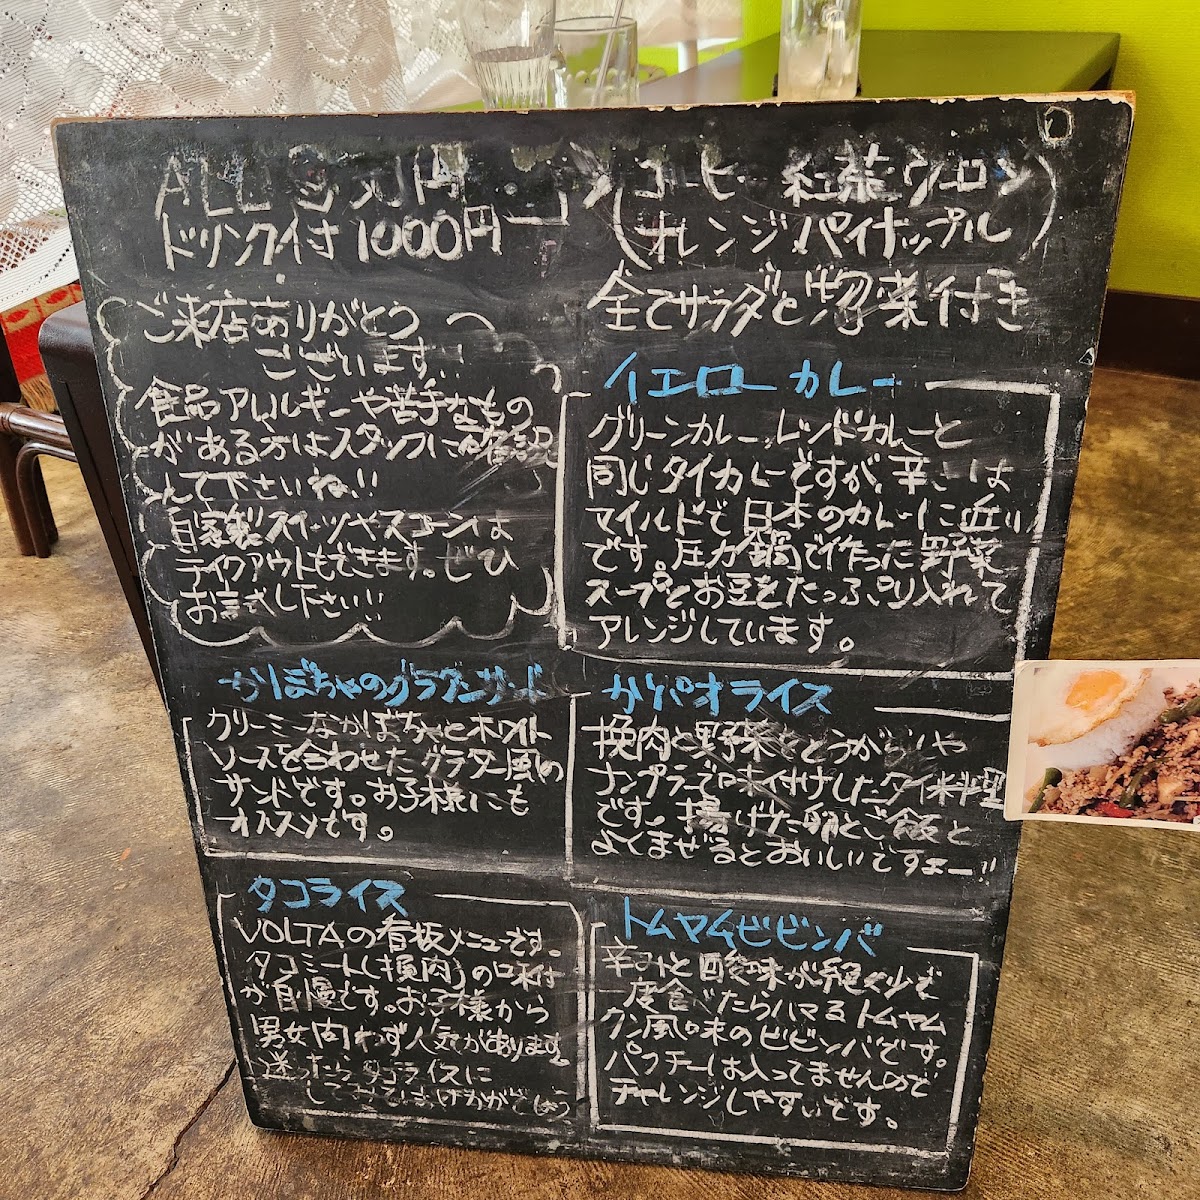 ALL
円
ドリンク付 1000円
(コーヒー 紅茶 ウーロン
オレンジ パイナップル)
全てサラダと惣菜付き
ご来店ありがとう
ございます!!
食品アレルギーや苦手なもの
がある方はスタッフに確認
して下さいね!!
自家製スイーツやスコーンは
テイクアウトもできます。ぜひ
お試し下さい!!
イエローカレー
グリーンカレー、レッドカレーと
同じタイカレーですが、辛さは
マイルドで日本のカレーに近い
です。圧力鍋で作った野菜
スープとお豆をたっぷり入れて
アレンジしています。
かぼちゃのグラタンサンド
クリーミーなかぼちゃとホワイト
ソースを合わせたグラタン風の
サンドです。お子様にも
オススメです。
ガパオライス
挽肉と野菜をとうがらしや
ナンプラーで味付けしたタイ料理
です。揚げた卵とご飯と
よくまぜるとおいしいですよー!!
タコライス
VOLTAの看板メニューです。
タコミート(挽肉)の味付
が自慢です。お子様から
男女問わず人気があります。
迷ったらタコライスに
してみてはいかがでしょう
トムヤムビビンバ
辛みと酸味が絶妙で
一度食べたらハマるトムヤム
クン風味のビビンバです。
パクチーは入ってませんので
チャレンジしやすいです。